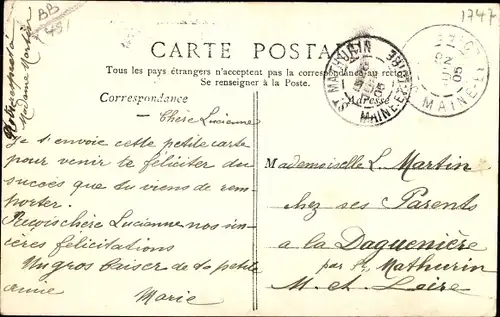 BB
(49)
1747
CARTE POSTALE
Tous les pays étrangers n'acceptent pas la correspondance au recto
Se renseigner à la Poste.
Correspondance
Adresse
ST MATHURIN
MAINE-ET-LOIRE
05
MAINE-ET
22
05
Madame Martin
Chère Lucienne
Je t'envoie cette petite carte
pour venir te féliciter du
succès que tu viens de rem-
porter.
Reçois chère Lucienne nos sin-
cères félicitations
Un gros baiser de ta petite
amie
Marie
Mademoiselle L. Martin
chez ses Parents
a la Daguenière
par St Mathurin
M. et. Loire